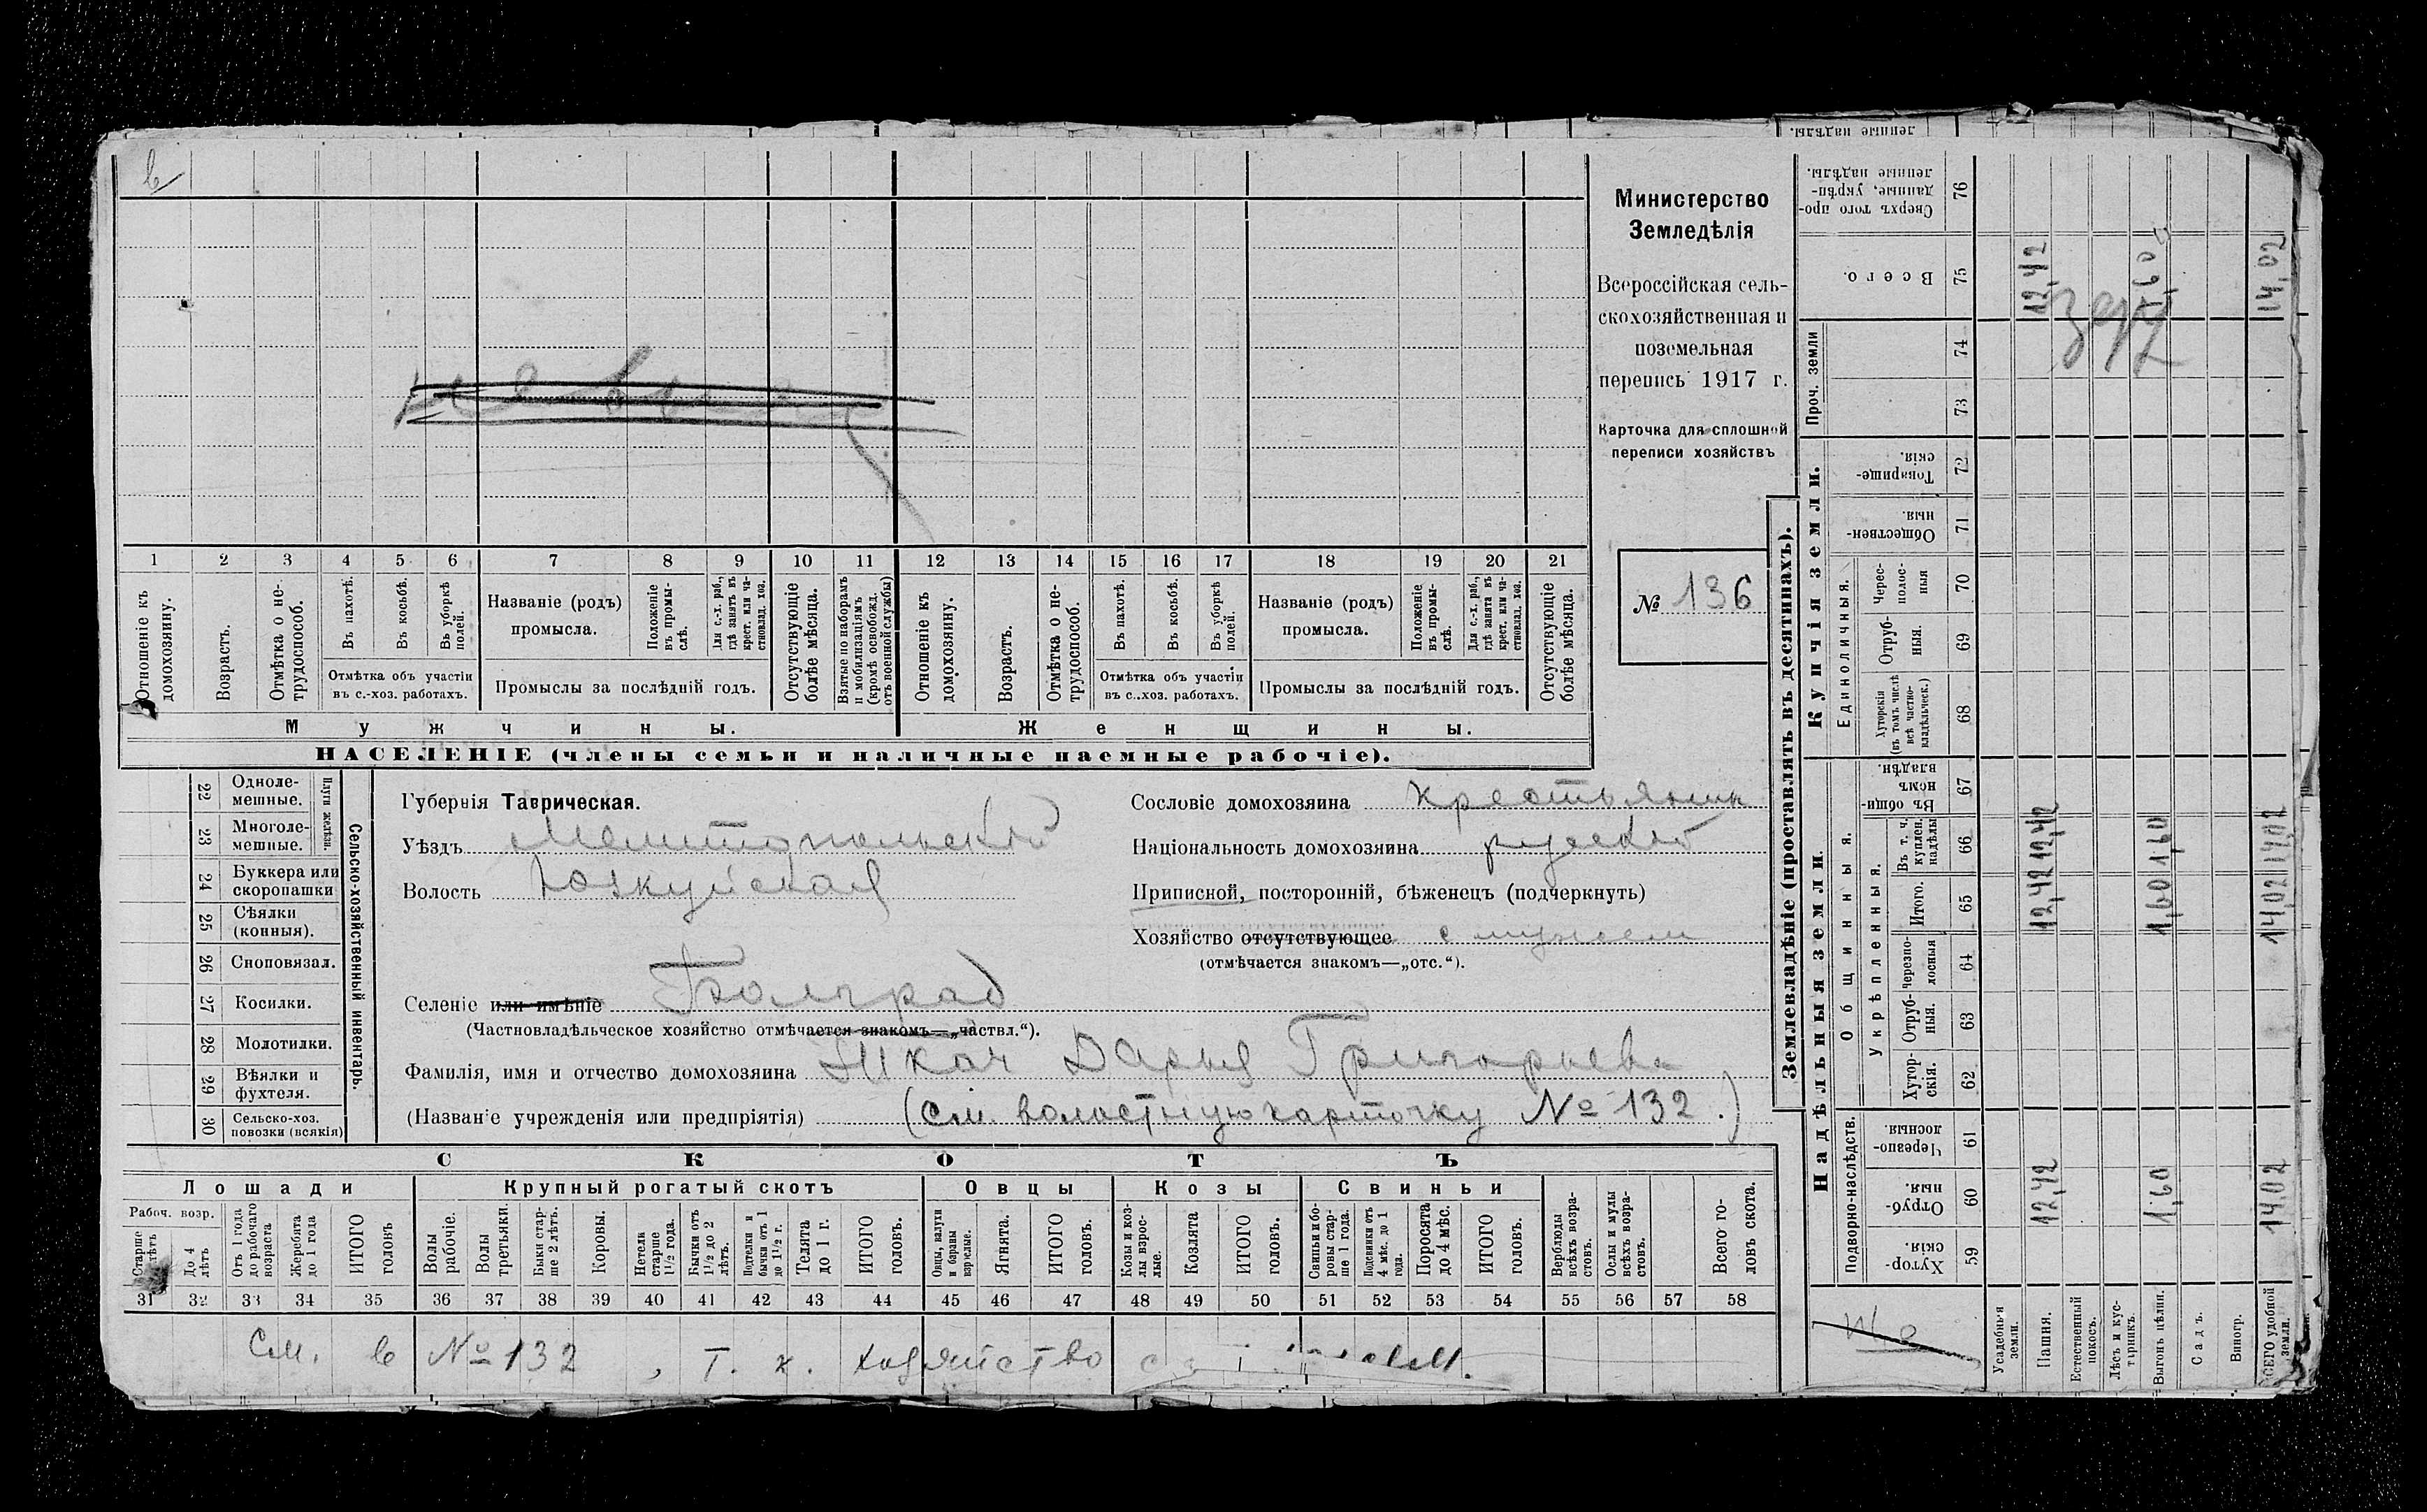 в
1 2 3 4 5 6 7 8 9 10 11 12 13 14 15 16 17 18 19 20 21
Отношеніе къ домохозяину.
Возрастъ.
Отмѣтка о не-
трудоспособ.
Въ пахотѣ.
Въ косьбѣ.
Въ уборкѣ полей.
Отмѣтка объ участіи
въ с.-хоз. работахъ.
Названіе (родъ)
промысла.
Положеніе въ промы-
слѣ.
Для с.-х. раб., гдѣ занятъ въ крест. или ча-
стновлад. хоз.
Промыслы за послѣдній годъ.
Отсутствующіе болѣе мѣсяца.
Взятые по наборамъ и мобилизаціямъ (кромѣ освобожд. отъ военной службы)
Отношеніе къ домохозяину.
Возрастъ.
Отмѣтка о не-
трудоспособ.
Въ пахотѣ.
Въ косьбѣ.
Въ уборкѣ полей.
Отмѣтка объ участіи
въ с.-хоз. работахъ.
Названіе (родъ)
промысла.
Положеніе въ промы-
слѣ.
Для с.-х. раб., гдѣ занята въ крест. или ча-
стновлад. хоз.
Промыслы за послѣдній годъ.
Отсутствующіе болѣе мѣсяца.
Мужчины.
Женщины.
НАСЕЛЕНІЕ (члены семьи и наличные наемные рабочіе).
Министерство
Земледѣлія
Всероссійская сель-
скохозяйственная и
поземельная
перепись 1917 г.
Карточка для сплошной
переписи хозяйствъ
№ 136
Сельско-хозяйственный инвентарь.
Плуги желѣзн.
22 Одноле-
мешные.
23 Многоле-
мешные.
24 Буккера или
скоропашки
25 Сѣялки
(конныя).
26 Сноповязал.
27 Косилки.
28 Молотилки.
29 Вѣялки и
фухтеля.
30 Сельско-хоз.
повозки (всякія)
Губернія Таврическая.
Уѣздъ Мелитопольскій
Волость Юзкуйская
Селеніе или имѣніе Болград
(Частновладѣльческое хозяйство отмѣчается знакомъ—„частвл.“).
Фамилія, имя и отчество домохозяина Ткач Дарья Григорьева
(Названіе учрежденія или предпріятія) (См. волостную карточку № 132.)
Сословіе домохозяина крестьянин
Національность домохозяина русскій
Приписной, посторонній, бѣженецъ (подчеркнуть)
Хозяйство отсутствующее с мужем
(отмѣчается знакомъ—„отс.“).
СКОТЪ
Лошади
Рабоч. возр.
Старше лѣтъ
До 4 лѣтъ
Отъ 1 года до рабочаго возраста
Жеребята до 1 года
ИТОГО головъ
Крупный рогатый скотъ
Волы рабочіе.
Волы третьяки.
Быки стар-
ше 2 лѣтъ.
Коровы.
Нетели старше 1½ года.
Бычки отъ 1½ до 2 лѣтъ.
Подтелки и бычки отъ 1 до 1½ г.
Телята до 1 г.
ИТОГО головъ.
Овцы
Овцы, валухи и бараны взрослые.
Ягнята.
ИТОГО головъ.
Козы
Козы и коз-
лы взрос-
лые.
Козлята
ИТОГО головъ.
Свиньи
Свиньи и бо-
ровы стар-
ше 1 года.
Подсвинки отъ 4 мѣс. до 1 года.
Поросята до 4 мѣс.
ИТОГО головъ.
Верблюды всѣхъ возра-
стовъ.
Ослы и мулы всѣхъ возра-
стовъ.
Всего го-
ловъ скота.
31 32 33 34 35 36 37 38 39 40 41 42 43 44 45 46 47 48 49 50 51 52 53 54 55 56 57 58
См. в № 132, т. к. хозяйство
Землевладѣніе (проставлять въ десятинахъ).
Надѣльныя земли.
Купчія земли.
Проч. земли
Подворно-наслѣдств.
Общинныя.
Укрѣпленныя.
Единоличныя.
Хутор-
скія. 59
Отруб-
ныя. 60
Черезпо-
лосныя. 61
Хутор-
скія. 62
Отруб-
ныя. 63
черезпо-
лосныя 64
Итого. 65
Въ т. ч. куплен. надѣлы 66
Въ общи-
номъ владѣн. 67
Хуторскія (въ томъ числѣ всѣ частно-
владѣльческ.) 68
Отруб-
ныя. 69
Черес-
полос-
ныя 70
Обществен-
ныя. 71
Товарище-
скія. 72
73
74
Всего. 75
Сверхъ того про-
данные, укрѣп-
ленные надѣлы. 76
ленные надѣлы.
Усадебныя земли.
Пашня. 12,42 12,42 12,42 12,42
Естественный покосъ.
Лѣсъ и кус-
тарникъ.
Выгонъ цѣлин. 1,60 1,60 1,60 1,60
Садъ.
Виногр.
ВСЕГО удобной земли. 14,02 14,02 14,02 14,02